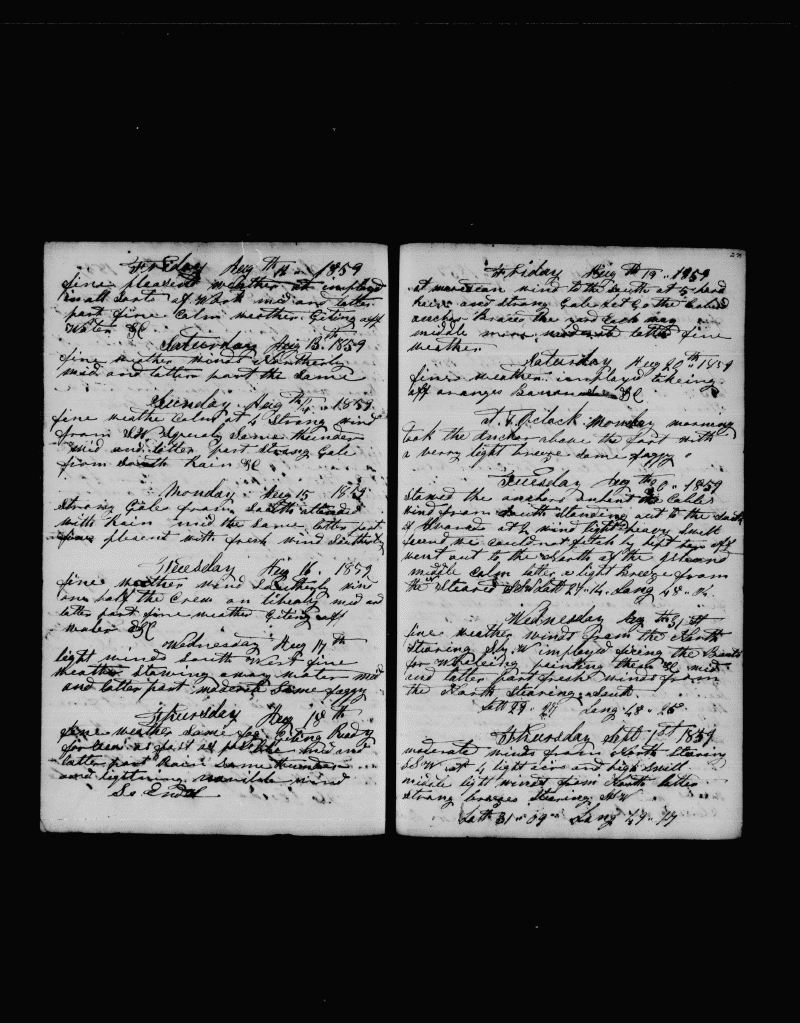 Friday Aug th 12 1859
fine pleasent weather at imployd
in all Sorts of Work mid and latter
part fine Calm weather. Giting off
Water &C
Saturday Aug 13th 1859
fine weather winds Northerly
mid and latter part the Same
Sunday Aug th 14 1859
fine weathe Calm at 4 Strong wind
from SW Squaly Some thunder
mid and latter part Strong Gale
from South Rain &C
Monday Aug 15 1859
Strong Gale from South attended
with Rain mid the Same latter part
plesent with fresh wind Southerly
Tuesday Aug 16. 1859
fine weather wind Southerly
one half the Crew on liberty mid and
latter part fine weather Giting off
water &C
Wednesday Aug 17 th
light winds South West fine
weather Stowing away water mid
and latter part Some foggy
Thursday Aug 18 th
fine weather Some fog. Giting Ready
for Sea as fast as mid and
latter part Rain Some thunder
and lightning wind
So Ends
Friday Aug th 19. 1859
at wind to the South at 5 hard
and Strong Gale Let Go the
anchor the yard Each way
middle latter fine
weather
Saturday Aug 20 th 1859
fine weather imployd takeing
off oranges &C
at O,Clock Monday morning
took the anchor above the foot with
a verry light breeze some foggy
Tuesday Aug th 30 1859
Stowed the anchors the Cable
wind from South Standing out to the
at 6 wind light heavy Swell
found we could not fetch by kept off
went out to the North of the Island
middle Calm latter a light Breeze from
the Steared Latt 27.. 14. Long 48..
Wednesday Aug th 31 st
fine weather winds from the North
Stearing S by. W imployed fixing the Boats
for Whaleing painting them &C mid
and latter part fresh winds from
the North Stearing South
Latt 29.. 27 Long 48.. 25
Thursday Sept 1 st 1859
moderate winds from North Stearing
SSW at 4 light airs and high Swell
middle light winds from North latter
strong breezes Stearing SW
Latt 31.. 09.. Long 49.. 47